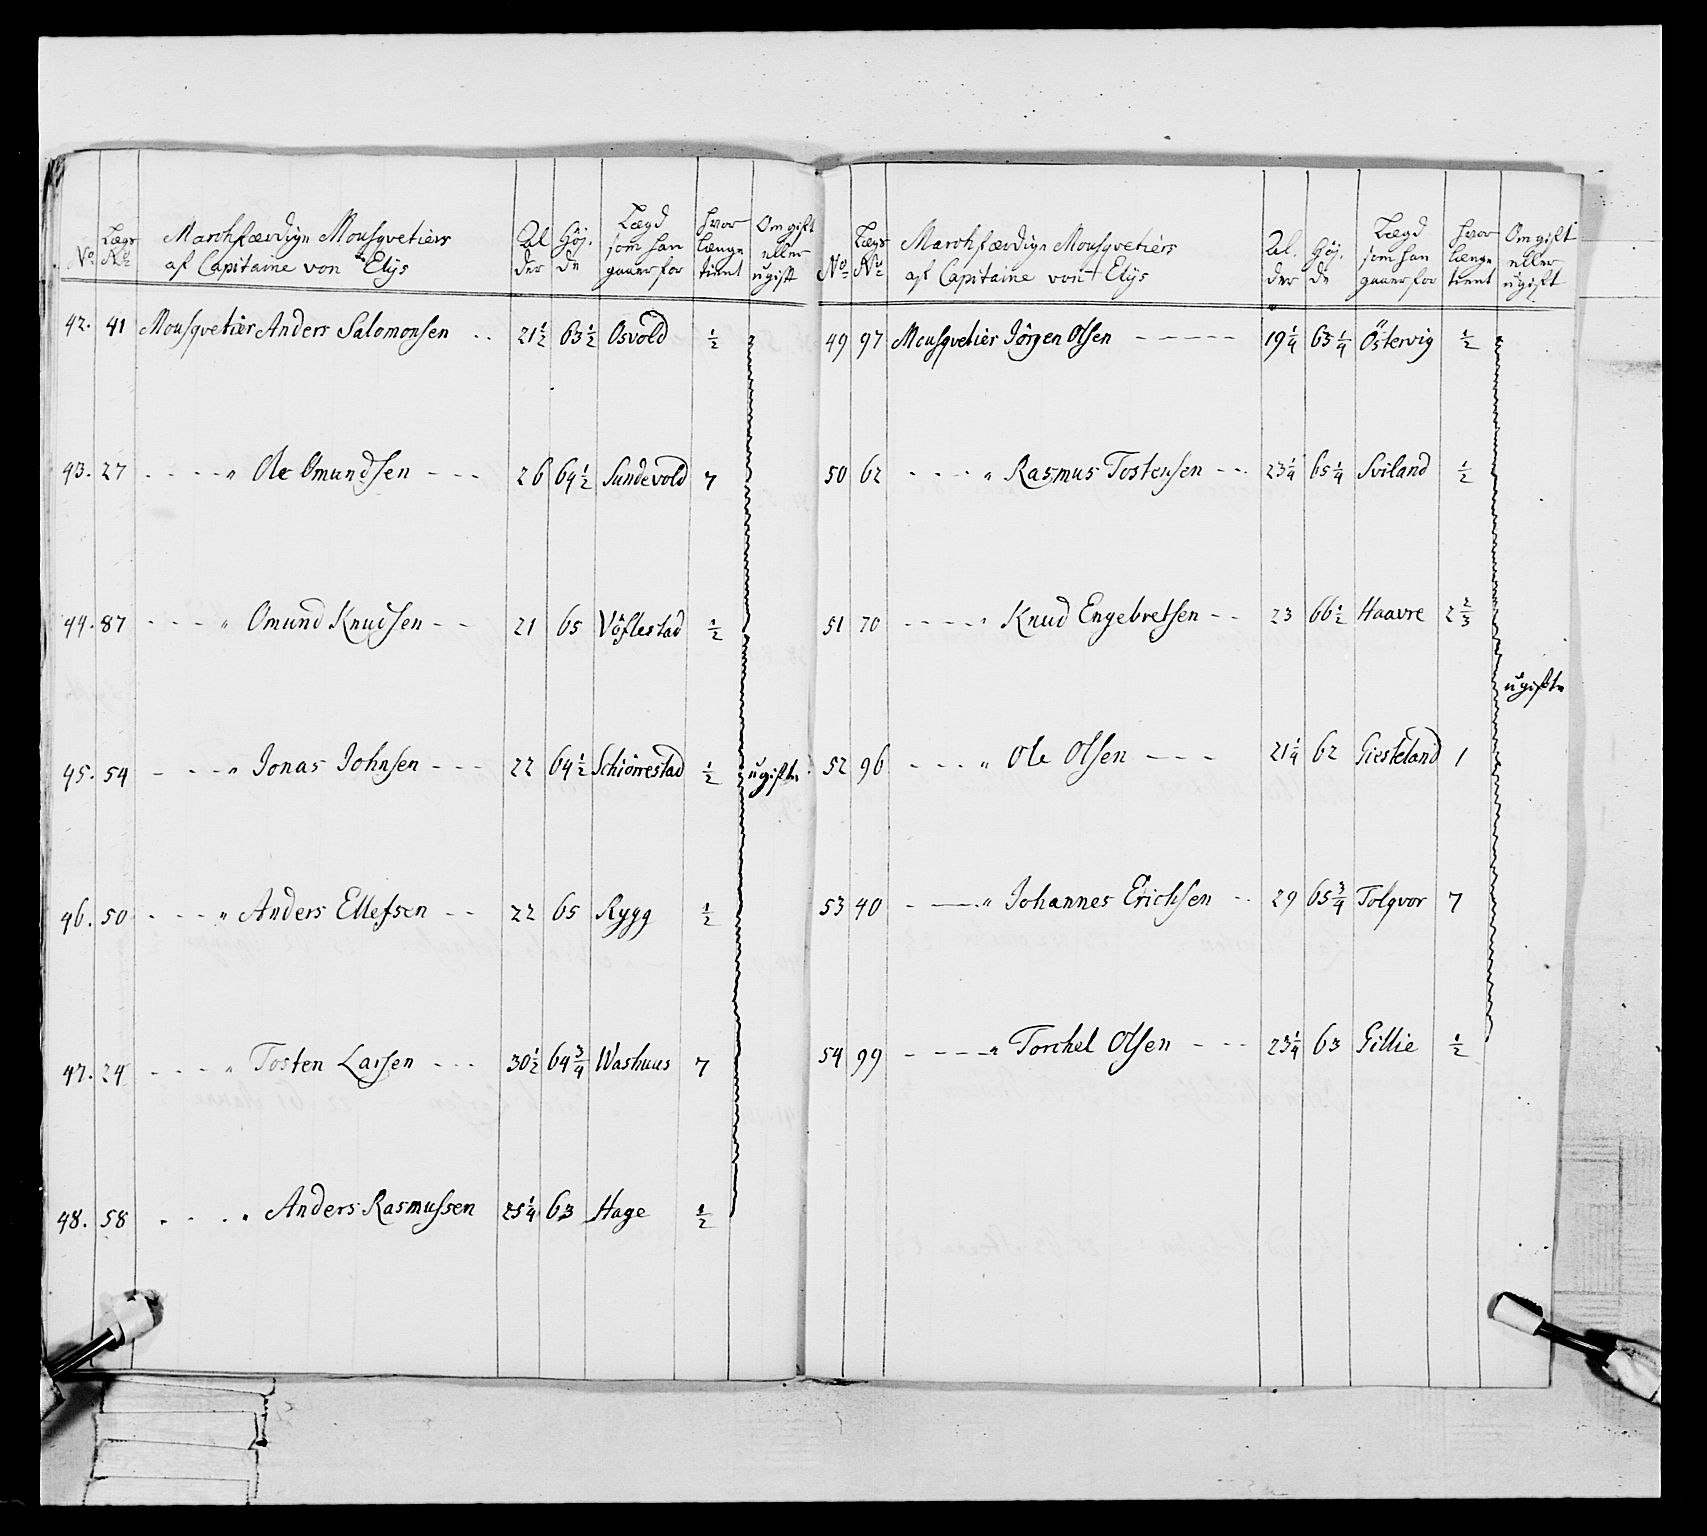 No Lægs No Marchfærdige Mousqvetiers af Capitaine von Elijs Al der Høj. de Lægd som han gaaer for hvor længe tient Om gift eller ugift
42. 41 Mousqvetier Anders Salomonsen - - 21 1/2 63 1/2 Osvold 1/2
43. 27 - - - - " Ole Omundsen - - - 26 64 1/2 Sundevold 7
44. 87 - - - - " Omund Knudsen - - 21 65 Vöflestad 1/2
45. 54 - - - - " Jonas Johnsen - - - 22 64 1/2 Schiörrestad 1/2 ugifte
46. 50 - - - - " Anders Ellefsen - - 22 65 Rygg 1/2
47. 24 - - - - " Tosten Larsen - - - 30 1/2 64 3/4 Washuus 7
48. 58 - - - " Anders Rasmussen 25 1/4 63 Hage 1/2
No Lægs No Marchfærdige Mousqvetiers af Capitaine von Elijs Al. der Høj. de Lægd som han gaaer for hvor længe tient Om gift eller ugift
49 97 Mousqvetier Jörgen Olsen - - - - - 19 1/4 63 1/4 Östervig 1/2
50 62 - - - - " Rasmus Tostensen - - - 23 1/4 65 1/4 Sviland 1/2
51 70 - - - - " Knud Engebretsen - - 23 66 1/2 Haavre 2 2/3
ugifte
52 96 - - - - " Ole Olsen - - - 21 1/4 62 Giesteland 1
53 40 - - - " Johannes Erichsen - - 29 65 3/4 Tolqvor 7
54 99 - - - - " Torchel Olsen - - - 23 1/4 63 Gillie 1/2